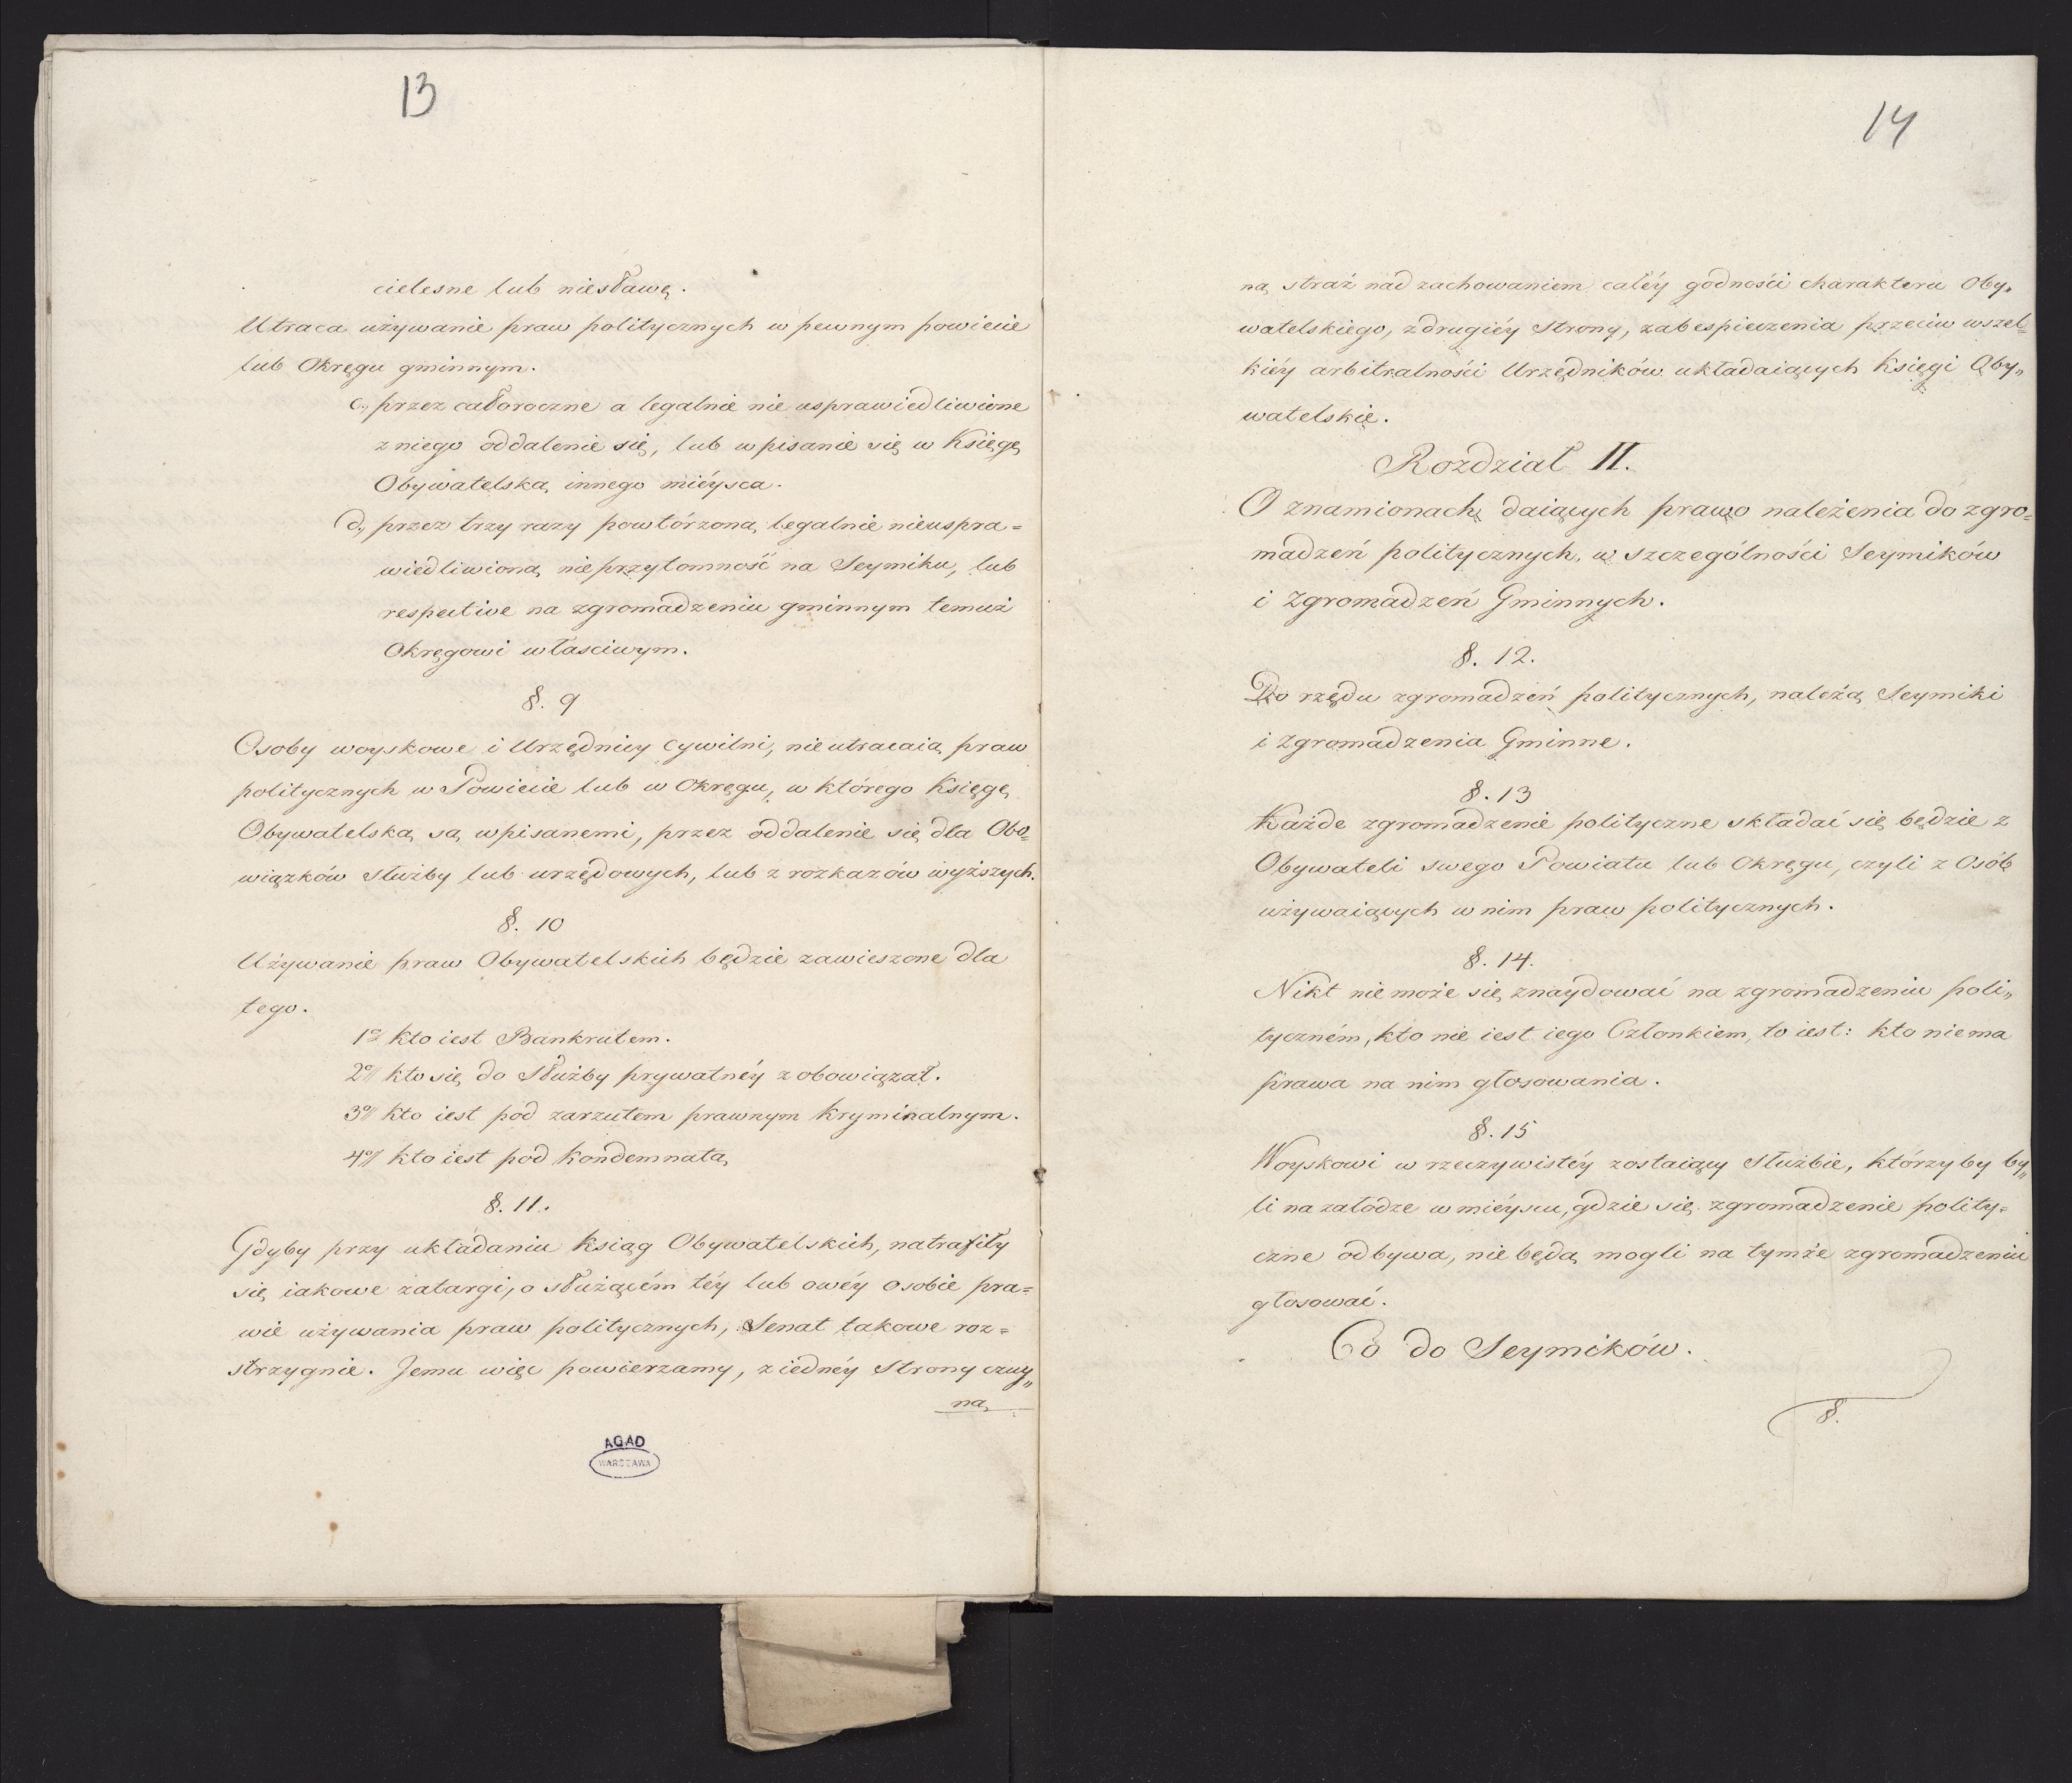 13
cielesne lub niesławę.
Utraca używanie praw politycznych w pewnym powiecie
lub Okręgu gminnym.
c., przez całoroczne a legalnie nie usprawiedliwione
z niego oddalenie się, lub wpisanie się w Księgę
Obywatelską innego miéysca.
d., przez trzy razy powtórzoną legalnie nieuspra=
wiedliwioną nieprzytomność na Seymiku, lub
respective na zgromadzeniu gminnym temuż
Okręgowi własciwym.
§. 9
Osoby woyskowe i Urzędnicy Cywilni, nie utracaią praw
politycznych w Powiecie lub w Okręgu, w którego Księgę
Obywatelską są wpisanemi, przez oddalenie się dla Obo=
wiązków służby lub urzędowych, lub z rozkazów wyższych.
§. 10
Używanie praw Obywatelskich będzie zawieszone dla
tego.
1o kto iest Bankrutem.
2o// kto się do służby prywatnéy zobowiązał.
3o// kto iest pod zarzutem prawnym kryminalnym.
4o// kto iest pod kondemnatą
§. 11.
Gdyby przy układaniu ksiąg Obywatelskich, natrafiły
się iakowe zatargi, o służącém téy lub owéy osobie pra=
wie używania praw politycznych, Senat takowe roz=
strzygnie. Jemu więc powierzamy, z iednéy strony czuy„
ną
AGAD
WARSZAWA
14
ną straż nad zachowaniem całéy godności charakteru Oby„
watelskiego, z drugiéy strony, zabespieczenia przeciw wszel=
kiéy arbitralności Urzędników układaiących Księgi Oby„
watelskie.
Rozdział II.
O znamionach, daiących prawo należenia do zgro=
madzeń politycznych, w szczególności Seymików
i Zgromadzeń Gminnych.
§. 12.
Do rzędu zgromadzeń politycznych, należą Seymiki
i zgromadzenia Gminne.
§. 13
Każde zgromadzenie polityczne składać się będzie z
Obywateli swego Powiatu lub Okręgu, czyli z Osób
używaiących w nim praw politycznych.
§. 14.
Nikt nie może się znaydować na zgromadzeniu poli„
tyczném, kto nie iest iego Członkiem, to iest: kto nie ma
prawa na nim głosowania.
§. 15
Woyskowi w rzeczywistéy zostaiący służbie, którzy by by„
li na załodze w miéyscu, gdzie się zgromadzenie polity=
czne odbywa, nie będą mogli na tymże zgromadzeniu
głosować.
Co do Seymików.
§.